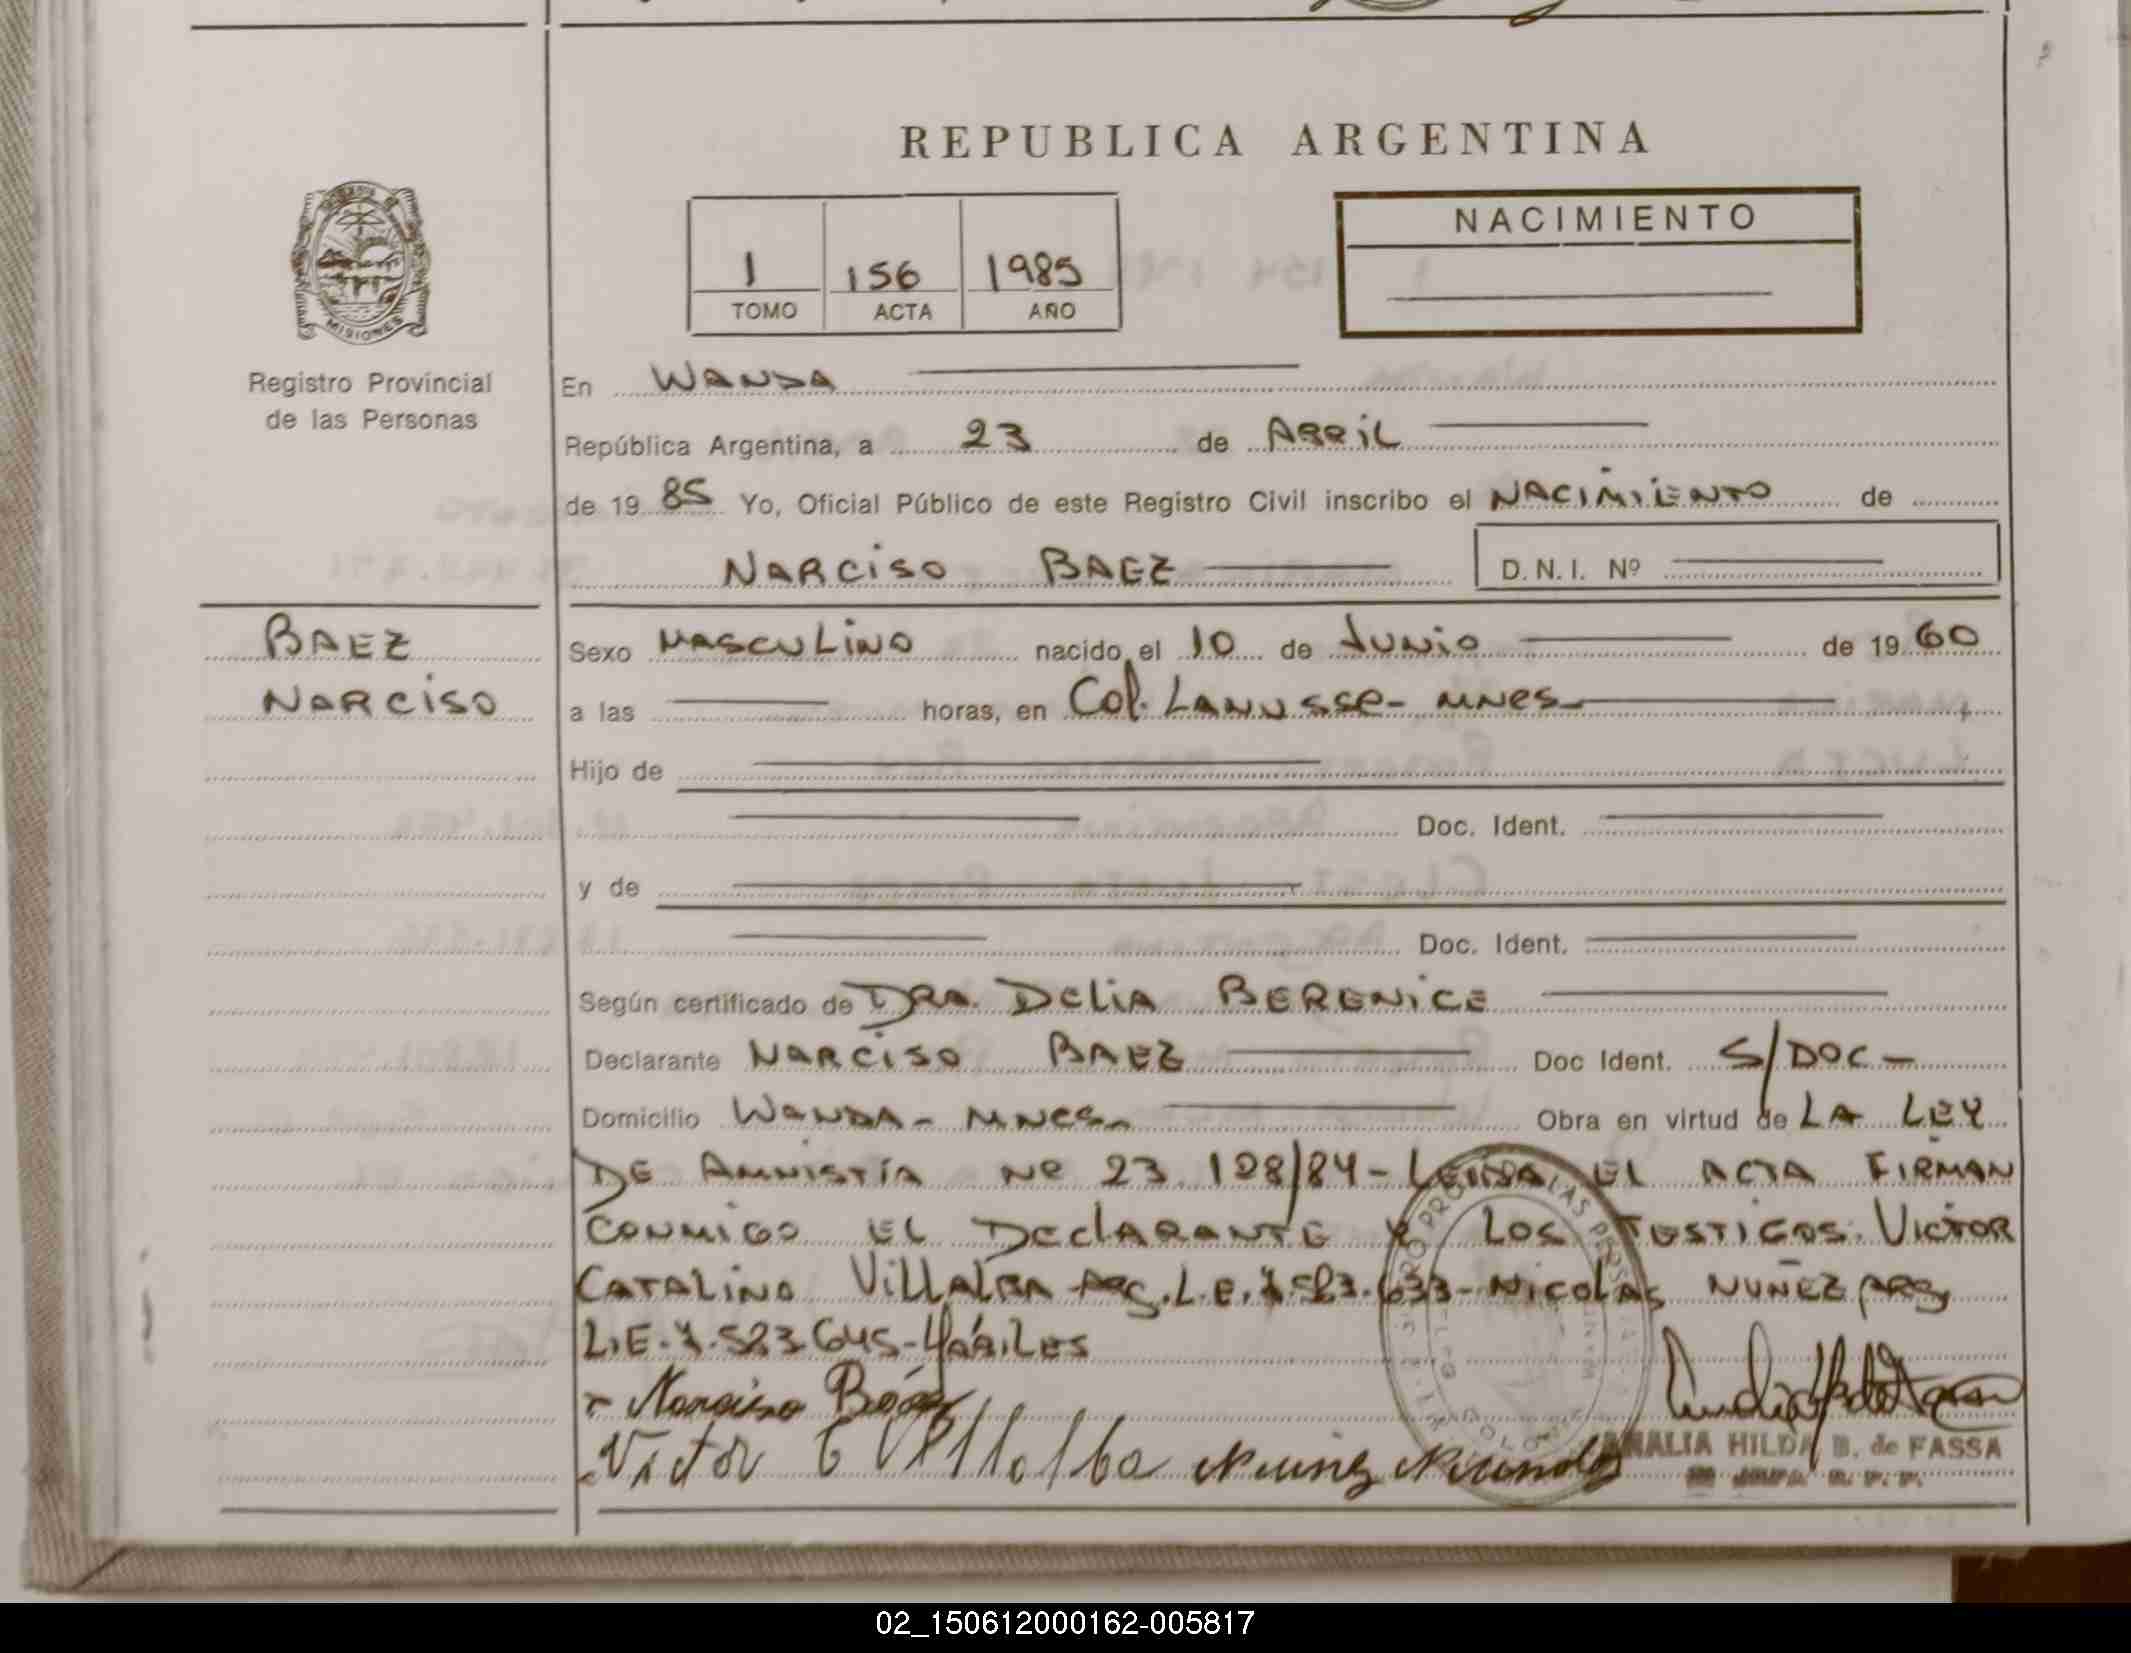 REPUBLICA ARGENTINA
1 156 1985
TOMO ACTA AÑO
NACIMIENTO
MISIONES
Registro Provincial
de las Personas
En WANDA
República Argentina, a 23 de ABRIL
de 19 85 Yo, Oficial Público de este Registro Civil inscribo el NACIMIENTO de
NARCISO BAEZ D.N.I. Nº
BAEZ
NARCISO
Sexo MASCULINO nacido el 10 de JUNIO de 19 60
a las horas, en Col. LANUSSE- MNES-
Hijo de
Doc. Ident.
y de
Doc. Ident.
Según certificado de DRA. DELIA BERENICE
Declarante NARCISO BAEZ Doc Ident. S/DOC-
Domicilio WANDA- MNES- Obra en virtud de LA LEY
DE AMNISTÍA Nº 23.128/84- LEIDA EL ACTA FIRMAN
CONMIGO EL DECLARANTE Y LOS TESTIGOS: VICTOR
CATALINO VILLALBA ARG. L.E. 7.583.633- NICOLAS NUÑEZ ARG
L.E. 7.583.645- HÁBILES
Narciso Báez
Victor C Villalba
AMALIA HILDA B. de FASSA
02_150612000162-005817